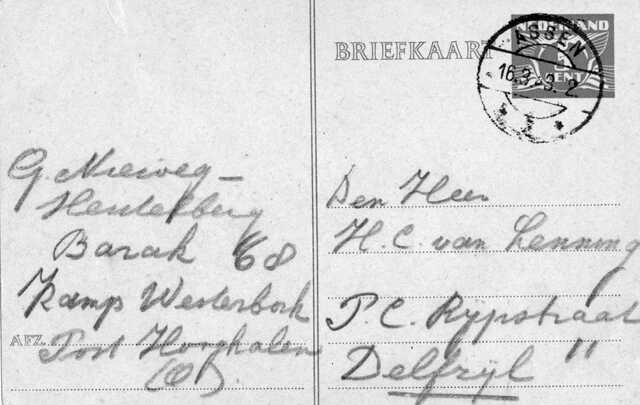 BRIEFKAART
NEDERLAND
5
CENT
ASSEN
16.3. 2
G. Nieweg-
Barak 68
Kamp Westerbork
AFZ. Post Hooghalen
(O).
Den Heer
H. C. van Lenning
P. C. Rijpstraat 11
Delfzijl